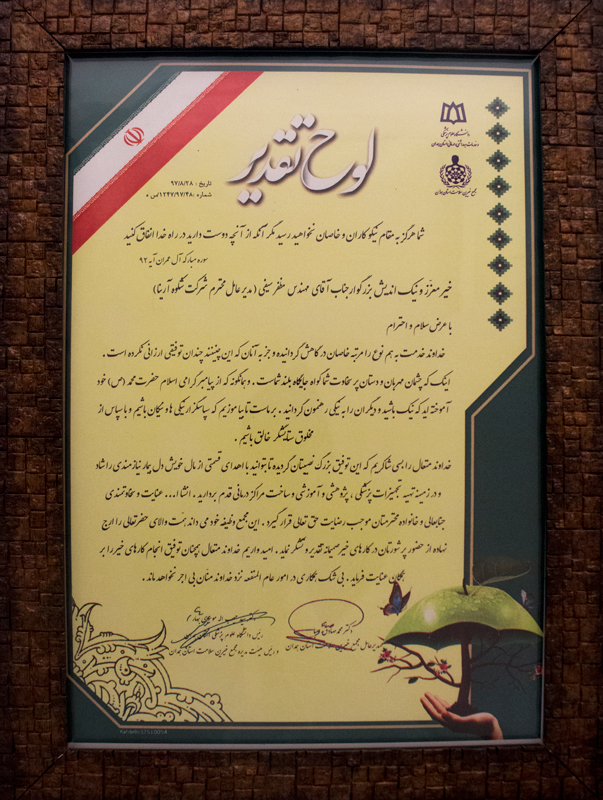 لوح تقدیر
دانشگاه علوم پزشکی
و خدمات بهداشتی درمانی استان همدان
مجمع خیرین سلامت استان همدان
تاریخ : ۹۷/۸/۲۸
شماره : ۱۲۴۷/۹۷/۴۸/ص ه
شما هرگز به مقام نیکوکاران و خاصان نخواهید رسید مگر آنکه از آنچه دوست دارید در راه خدا انفاق کنید
سوره مبارکه آل عمران آیه ۹۲
خیر معزز و نیک اندیش بزرگوار جناب آقای مهندس مظفر سیفی (مدیر عامل محترم شرکت شکوه آریتا)
با عرض سلام و احترام
خداوند خدمت به هم نوع را مرتبه خاصان درگاهش گردانیده و جز به آنان که این چنینند چندان توفیقی ارزانی نکرده است .
اینک که چشمان مهربان و دستان پر سخاوت شما گواه جایگاه بلند شماست . و همانگونه که از پیامبر گرامی اسلام حضرت محمد (ص) خود
آموخته اید که نیک باشید و دیگران را به نیکی رهنمون گردانید . بر ماست تا بیاموزیم که سپاسگزار نیکی ها و نیکان باشیم و با سپاس از
مخلوق ستایشگر خالق باشیم .
خداوند متعال را بسی شاکریم که این توفیق بزرگ نصیبتان گردیده تا بتوانید با اهدای قسمتی از مال خویش دل بیمار نیازمندی را شاد
و در زمینه تهیه تجهیزات پزشکی ، پژوهشی و آموزشی و ساخت مراکز درمانی قدم بردارید . انشا ا... عنایت و سخاوتمندی
جنابعالی و خانواده محترمتان موجب رضایت حق تعالی قرار گیرد . این مجمع وظیفه خود می داند همت والای حضرتعالی را ارج
نهاده از حضور پر شورتان در کارهای خیر صمیمانه تقدیر و تشکر نماید . امید واریم خداوند متعال همچنان توفیق انجام کارهای خیر را بر
همگان عنایت فرماید . بی شک همکاری در امور عام المنفعه نزد خداوند منان بی اجر نخواهد ماند .
دکتر محمد صادق
مدیر عامل مجمع خیرین سلامت استان همدان
رئیس دانشگاه علوم پزشکی
و رئیس هیئت مدیره مجمع خیرین سلامت استان همدان